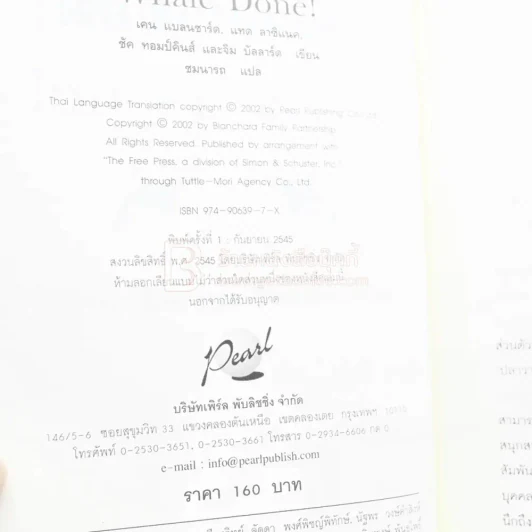 Whale Done!
เคน แบลนชาร์ด, แทด ลาซิแนค,
ชัค ทอมป์คินส์ และจิม บัลลาร์ด เขียน
ชมนารถ แปล
Thai Language Translation copyright © 2002 by Pearl Publishing
Copyright © 2002 by Blanchard Family Partnership
All Rights Reserved. Published by arrangement with
"The Free Press, a division of Simon & Schuster, Inc."
through Tuttle-Mori Agency Co., Ltd.
ISBN 974-90639-7-X
พิมพ์ครั้งที่ 1 : กันยายน 2545
สงวนลิขสิทธิ์ พ.ศ. 2545 โดยบริษัทเพิร์ล พับลิชชิ่ง จำกัด
ห้ามลอกเลียนแบบไม่ว่าส่วนใดส่วนหนึ่งของหนังสือเล่มนี้
นอกจากได้รับอนุญาต
Pearl
บริษัทเพิร์ล พับลิชชิ่ง จำกัด
146/5-6 ซอยสุขุมวิท 33 แขวงคลองตันเหนือ เขตคลองเตย กรุงเทพฯ 10110
โทรศัพท์ 0-2530-3651, 0-2530-3661 โทรสาร 0-2934-6606 กด 0
e-mail : info@pearlpublish.com
ราคา 160 บาท
ลัดดา พงศ์พิชญ์พิทักษ์, นัฐพร
ส่วนตัว
ปลาวา
สามาร
สนุกส
สัมพัน
บุคคล
นึกถึง